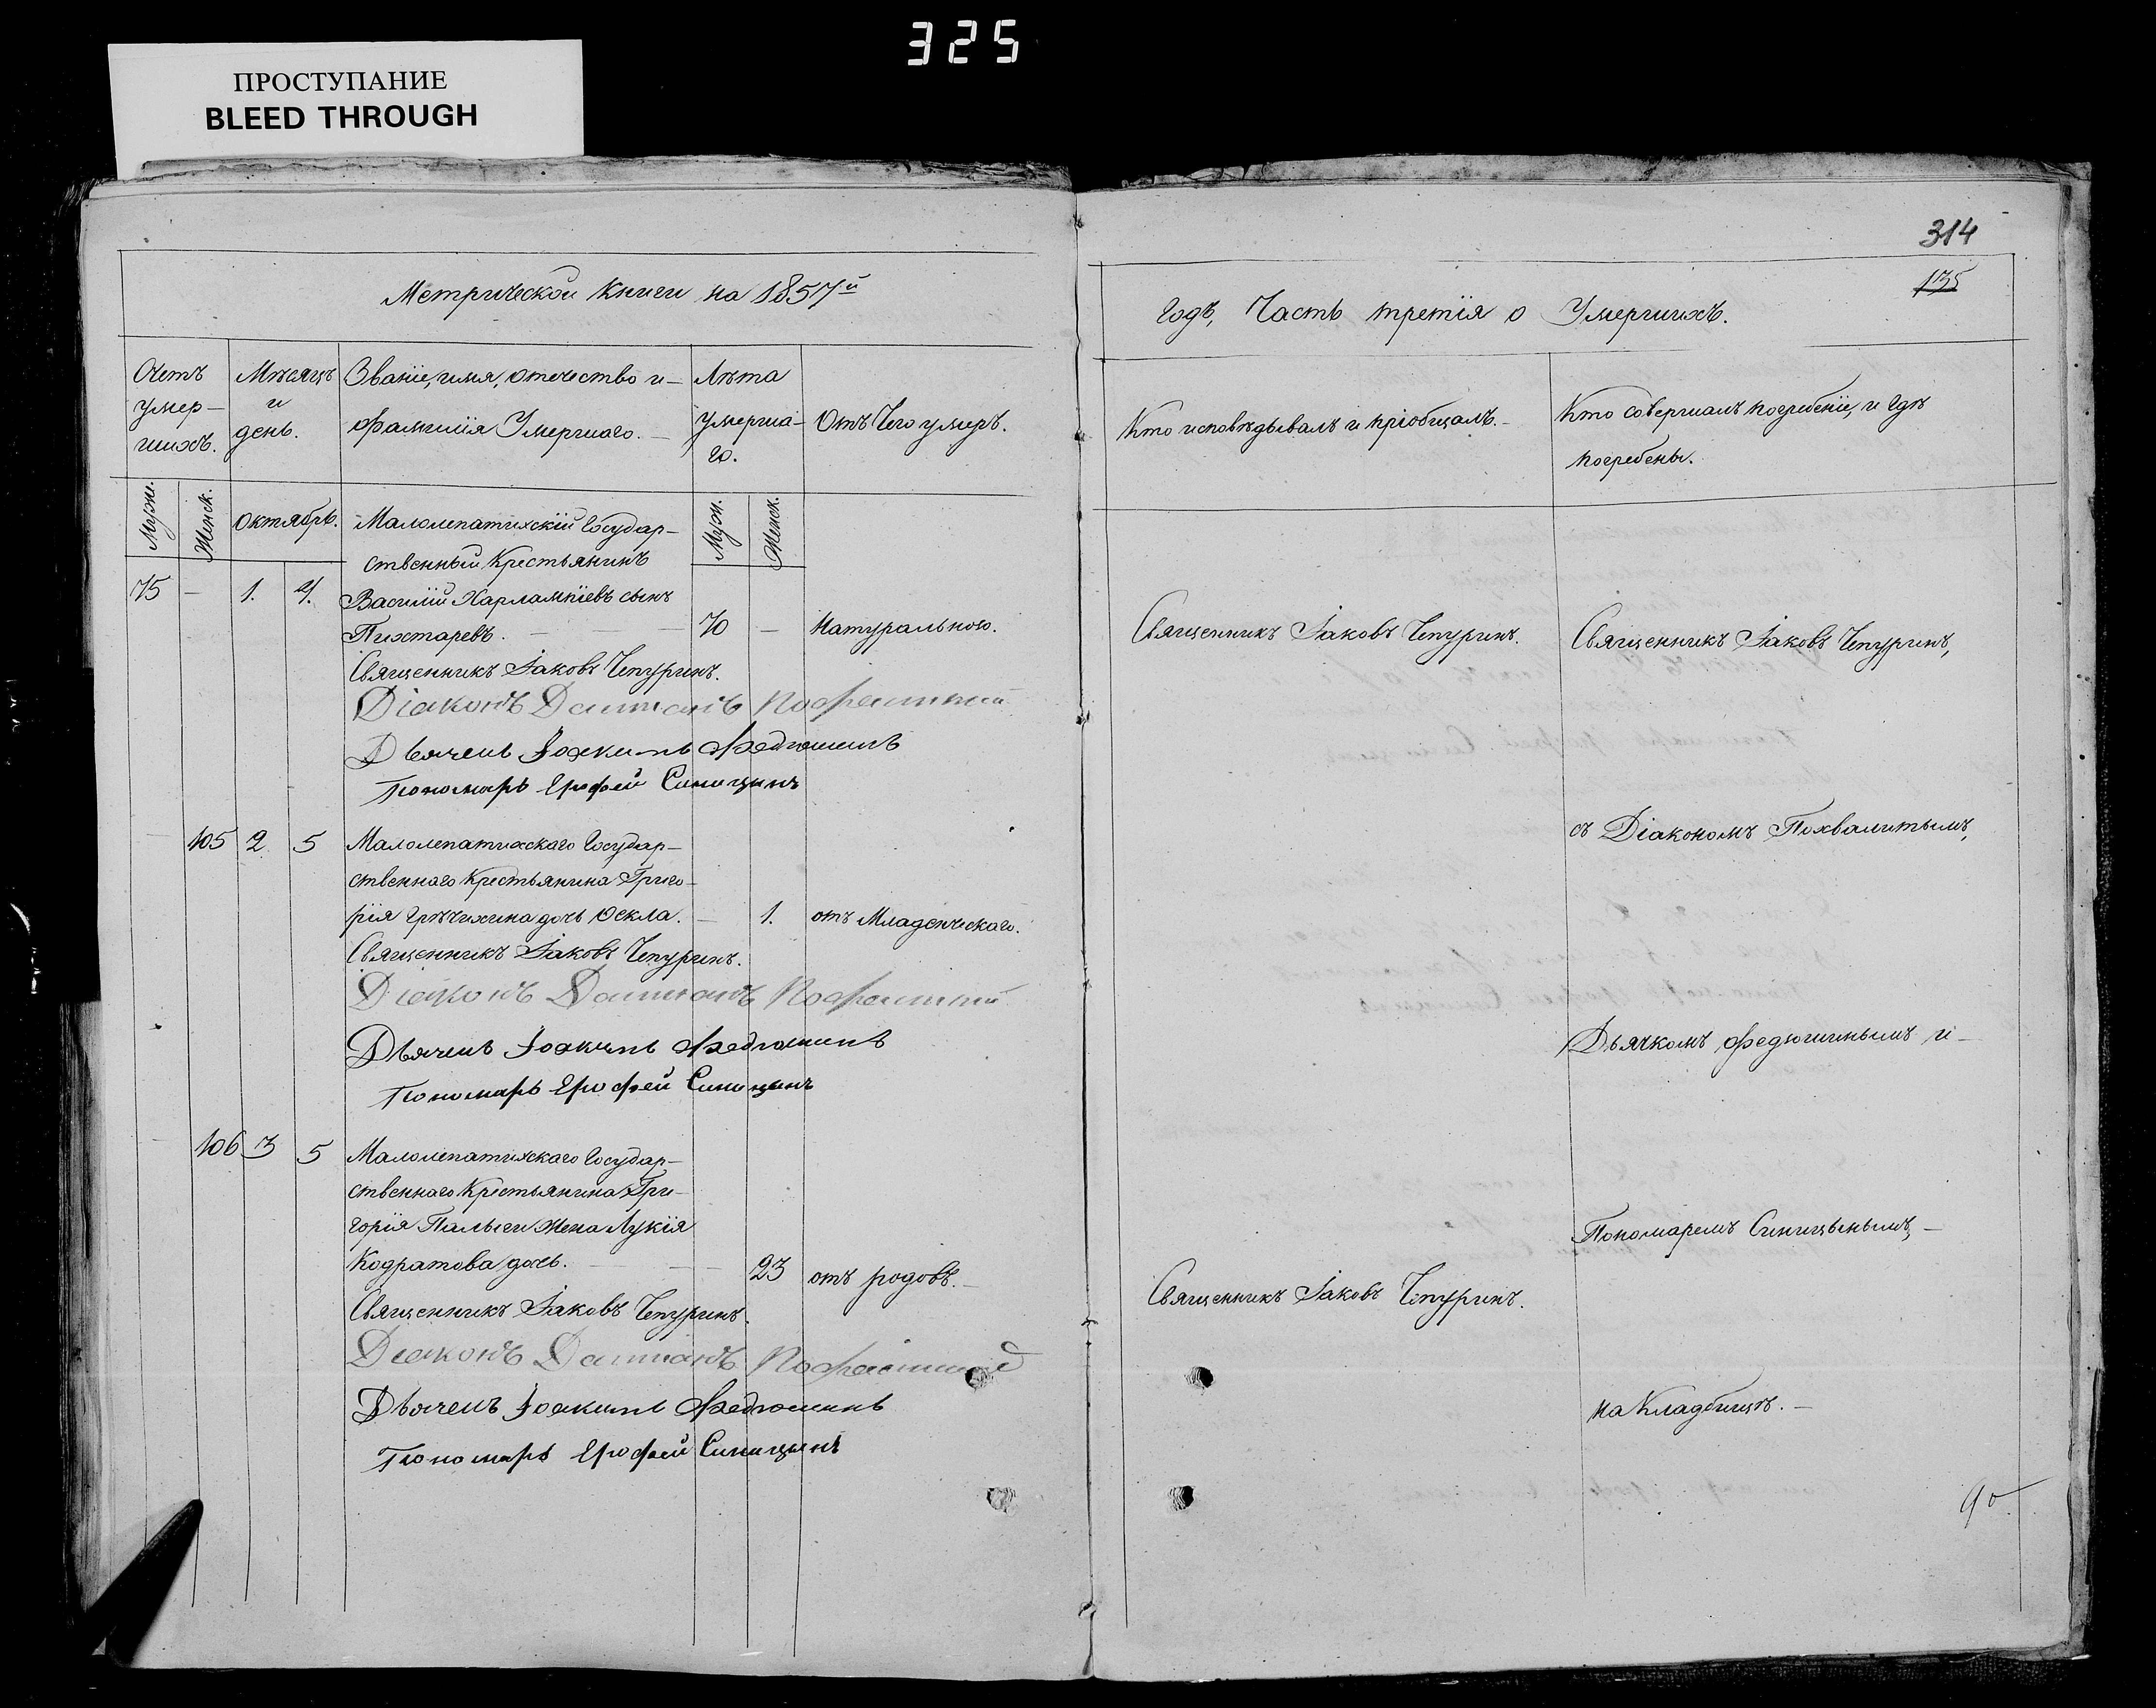 325
ПРОСТУПАНИЕ
BLEED THROUGH
Метрической книги на 1857й
Счетъ
умер-
шихъ.
Мѣсяцъ
и
день.
Званіе, имя, отечество и-
фамилія Умершаго.-
Лѣта
умерша-
го.
Отъ Чего умеръ.
Муж.
Женск.
Октябрь.
Муж.
Женск.
Малолепатихскій Государ-
ственный Крестьянинъ
75 - 1. 4. Василій Харлампіевъ сынъ
Пихтаревъ. - 70 - Натуральною.
Священникъ Іаковъ Чепуринъ.
Діаконъ Даміанъ
Дьячекъ Іоакимъ Федюшинъ
Пономарь Ерофей Синицынъ
- 105 2. 5 Малолепатихскаго Государ-
ственнаго Крестьянина Григо-
рія Грѣчихина дочь Ѳекла. - 1. отъ Младенческаго.
Священникъ Іаковъ Чепуринъ.
Діаконъ Даміанъ
Дьячекъ Іоакимъ Федюшинъ
Пономарь Ерофей Синицынъ
- 106 3 5 Малолепатихскаго Государ-
ственнаго Крестьянина Гри-
горія Палыги жена Лукія
Кодратова дочь. - 23 отъ родовъ.-
Священникъ Іаковъ Чепуринъ.
Діаконъ Даміанъ
Дьячекъ Іоакимъ Федюшинъ
Пономарь Ерофей Синицынъ
314
135
Годъ, Часть третія о Умершихъ.
Кто исповѣдывалъ и пріобщалъ.-
Кто совершалъ погребеніе, и гдѣ
погребены.
Священникъ Іаковъ Чепуринъ.
Священникъ Іаковъ Чепуринъ,
съ Діакономъ Похвалитымъ,
Дьячкомъ Федюшинымъ и-
Пономаремъ Синицынымъ,-
Священникъ Іаковъ Чепуринъ.
на Кладбищѣ.-